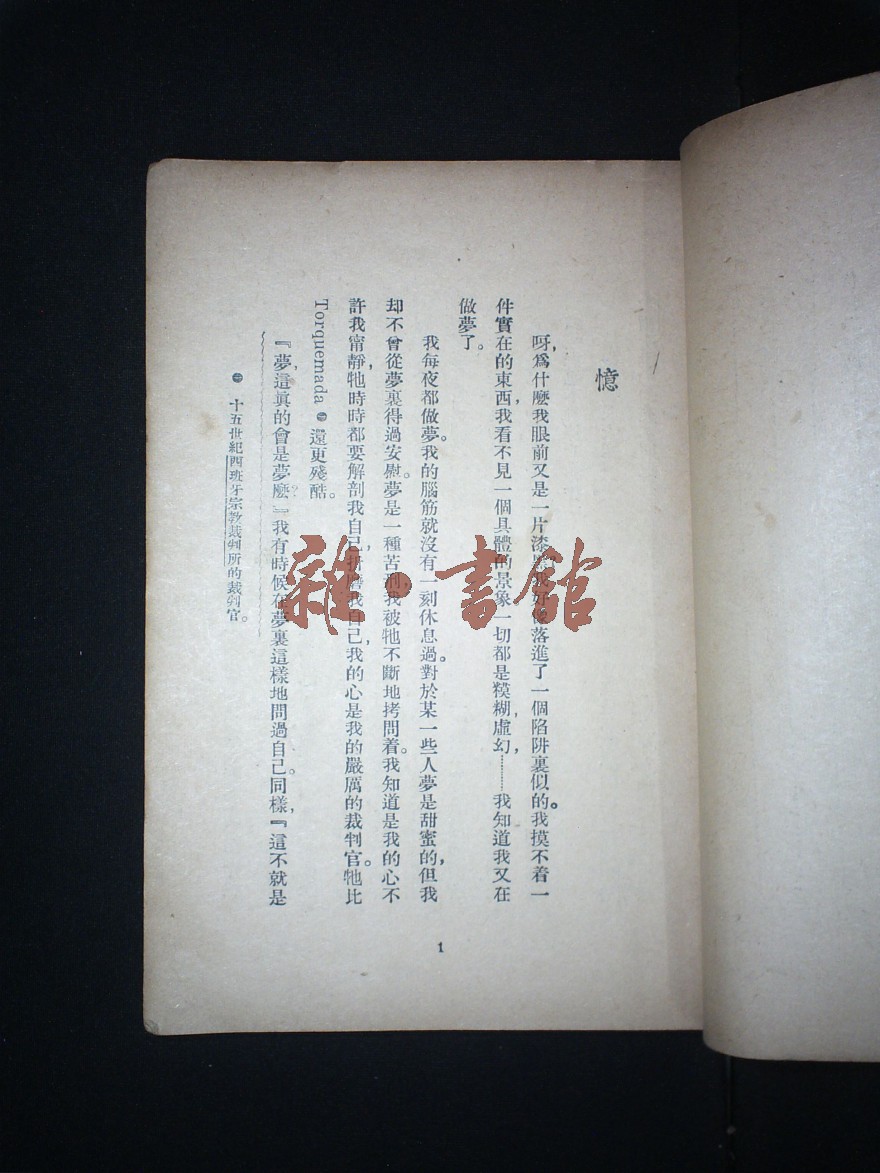 憶
呀，爲什麼我眼前又是一片漆 我好像落進了一個陷阱裏似的。我摸不着一
件實在的東西，我看不見一個具體的景象，一切都是糢糊，虛幻……我知道我又在
做夢了。
我每夜都做夢。我的腦筋就沒有一刻休息過。對於某一些人夢是甜蜜的，但我
却不曾從夢裏得過安慰。夢是一種苦刑，我被牠不斷地拷問着。我知道是我的心不
許我甯靜，牠時時都要解剖我自己，折磨我自己，我的心是我的嚴厲的裁判官。牠比
Torquemada ㊀ 還更殘酷。
『夢，這眞的會是夢麼？』我有時候在夢裏這樣地問過自己。同樣，『這不就是
㊀ 十五世紀西班牙宗教裁判所的裁判官。
1
雜·書館